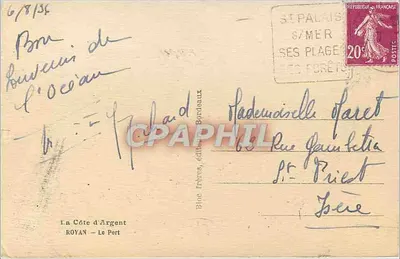 6/8/36
Bon
Souvenir de
l'Océan
La Côte d'Argent
ROYAN - Le Port
Bloc Frères, Bordeaux
ST PALAIS
S/MER
SES PLAGES
SES FORÊTS
REPUBLIQUE FRANÇAISE
20c
POSTES
CPAPHIL.COM
Mademoiselle Maret
Rue Gambetta
St Priest
Isère